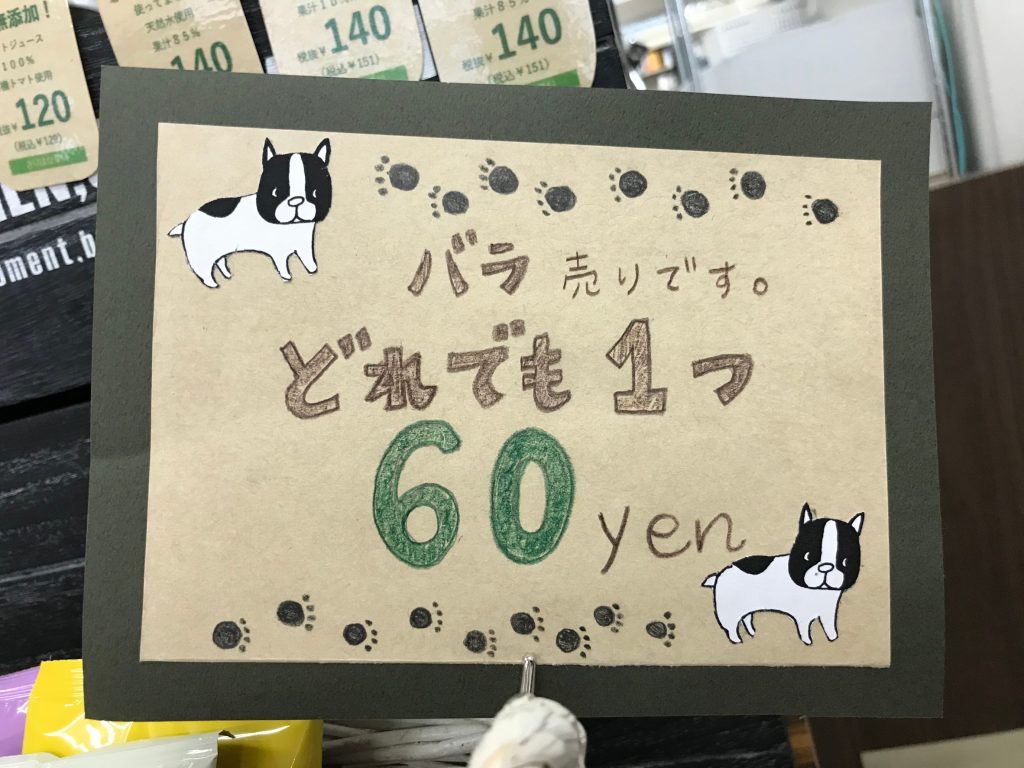 無添加！
トジュース
100%
機トマト使用
税抜¥120
(税込¥129)
使ってま
天然水使用
果汁85%
140
果汁10%
税抜¥140
(税込¥151)
果汁85%
税抜¥140
(税込¥151)
oment.b
バラ 売りです。
どれでも1つ
60 yen